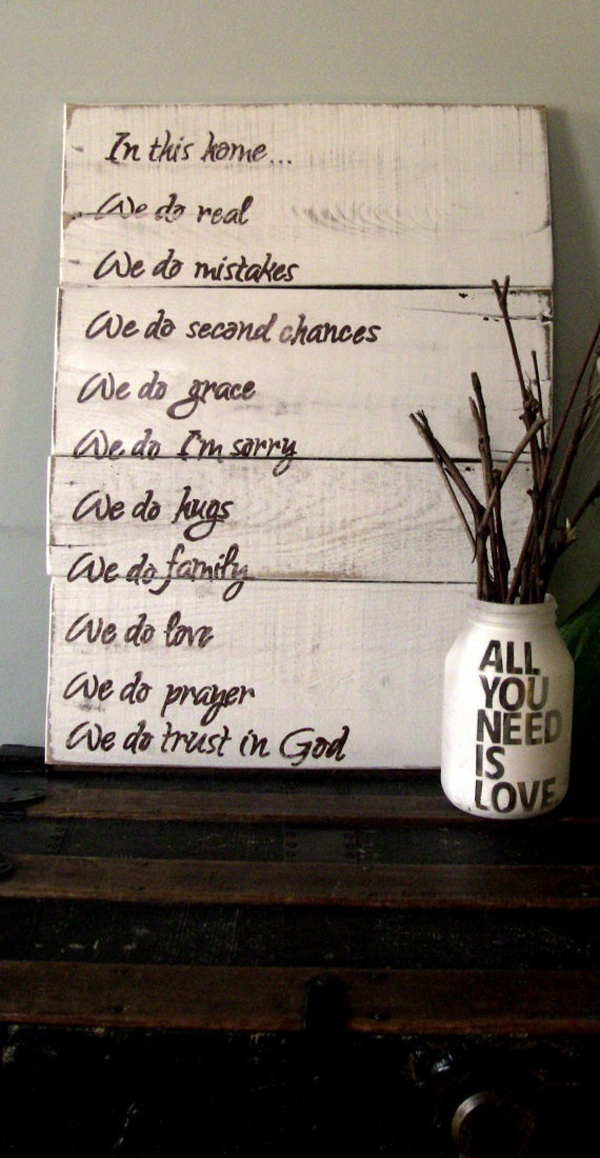 In this home...
We do real
We do mistakes
We do second chances
We do grace
We do I'm sorry
We do hugs
We do family
We do love
We do prayer
We do trust in God
ALL
YOU
NEED
IS
LOVE